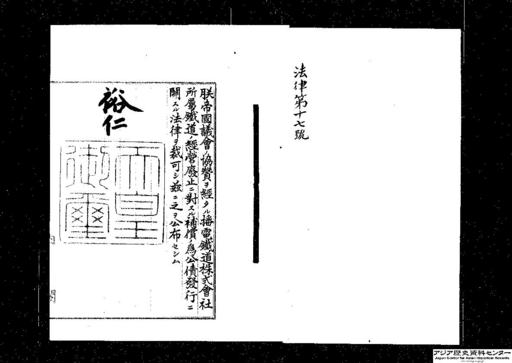 法律第十七號
朕帝國議會ノ協贊ヲ經タル播電鐵道株式會社
所屬鐵道ノ經營廢止ニ對スル補償ノ爲公債發行ニ
關スル法律ヲ裁可シ茲ニ之ヲ公布セシム
裕仁
天皇
御璽
内閣
アジア歴史資料センター
Japan Center for Asian Historical Records